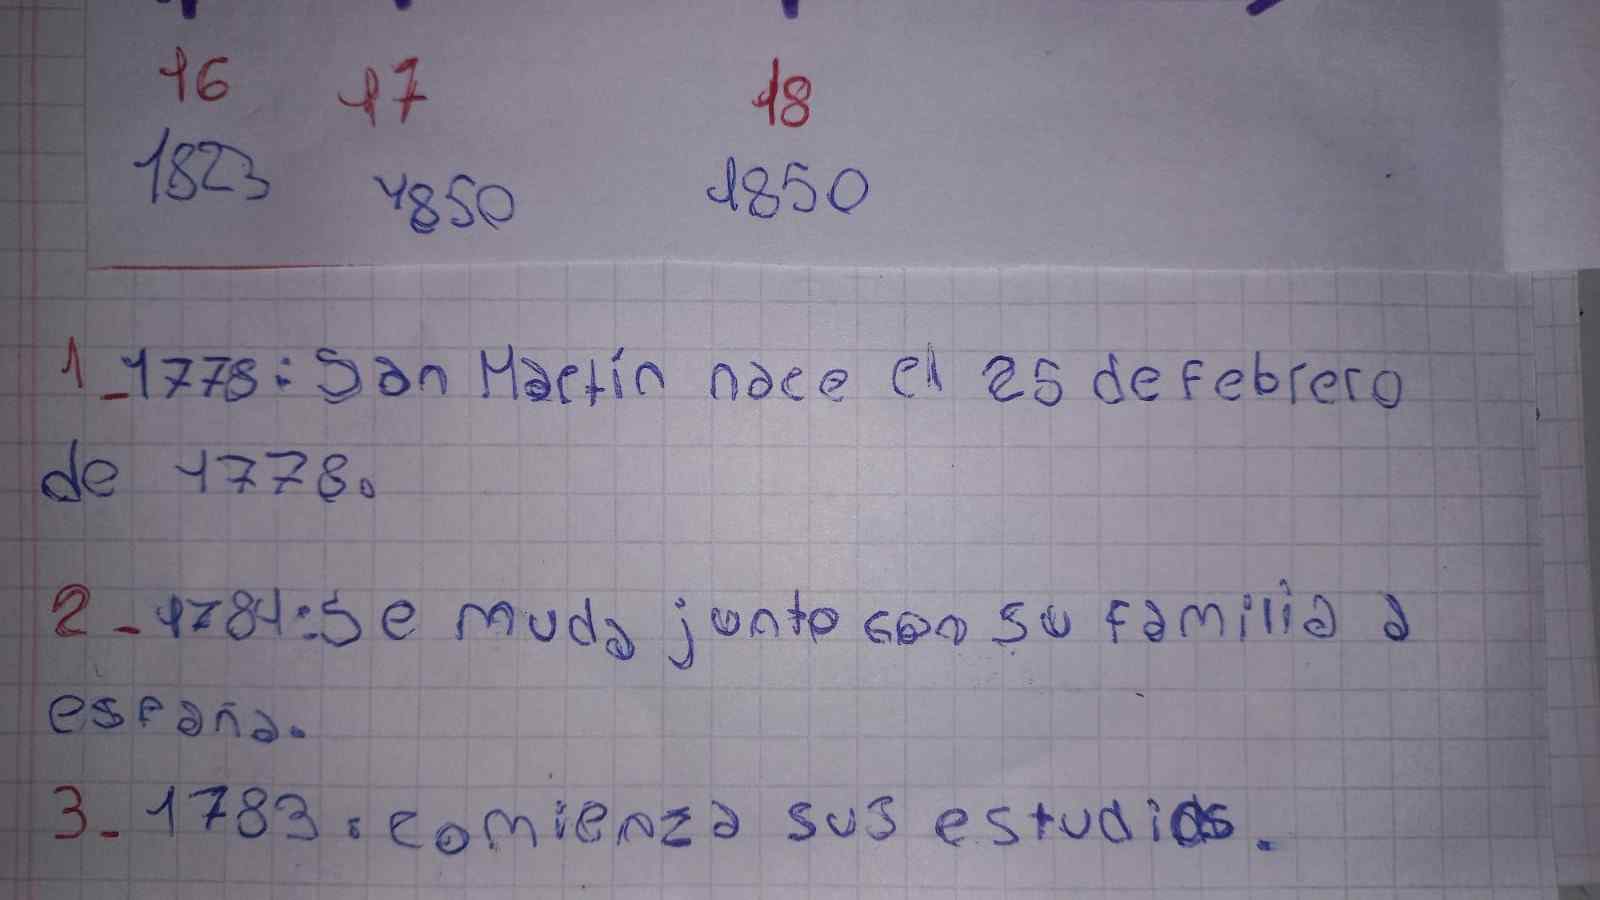 16 17 18
1823 1850 1850
1_1778: San Martín nace el 25 de febrero
de 1778.
2_1784: Se muda junto con su familia a
españa.
3_1783: comienza sus estudios.